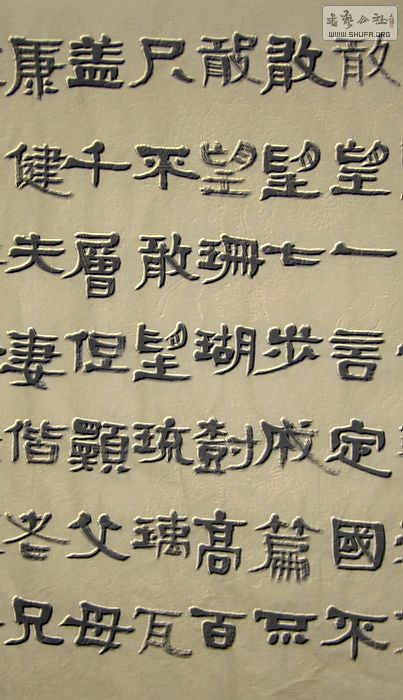 敢望一言定國不
敢望七步成篇不
敢望珊瑚樹高百
尺不敢望琉璃瓦
盖千層但願父母
康健夫妻偕老兄
書藝公社
WWW.SHUFA.ORG